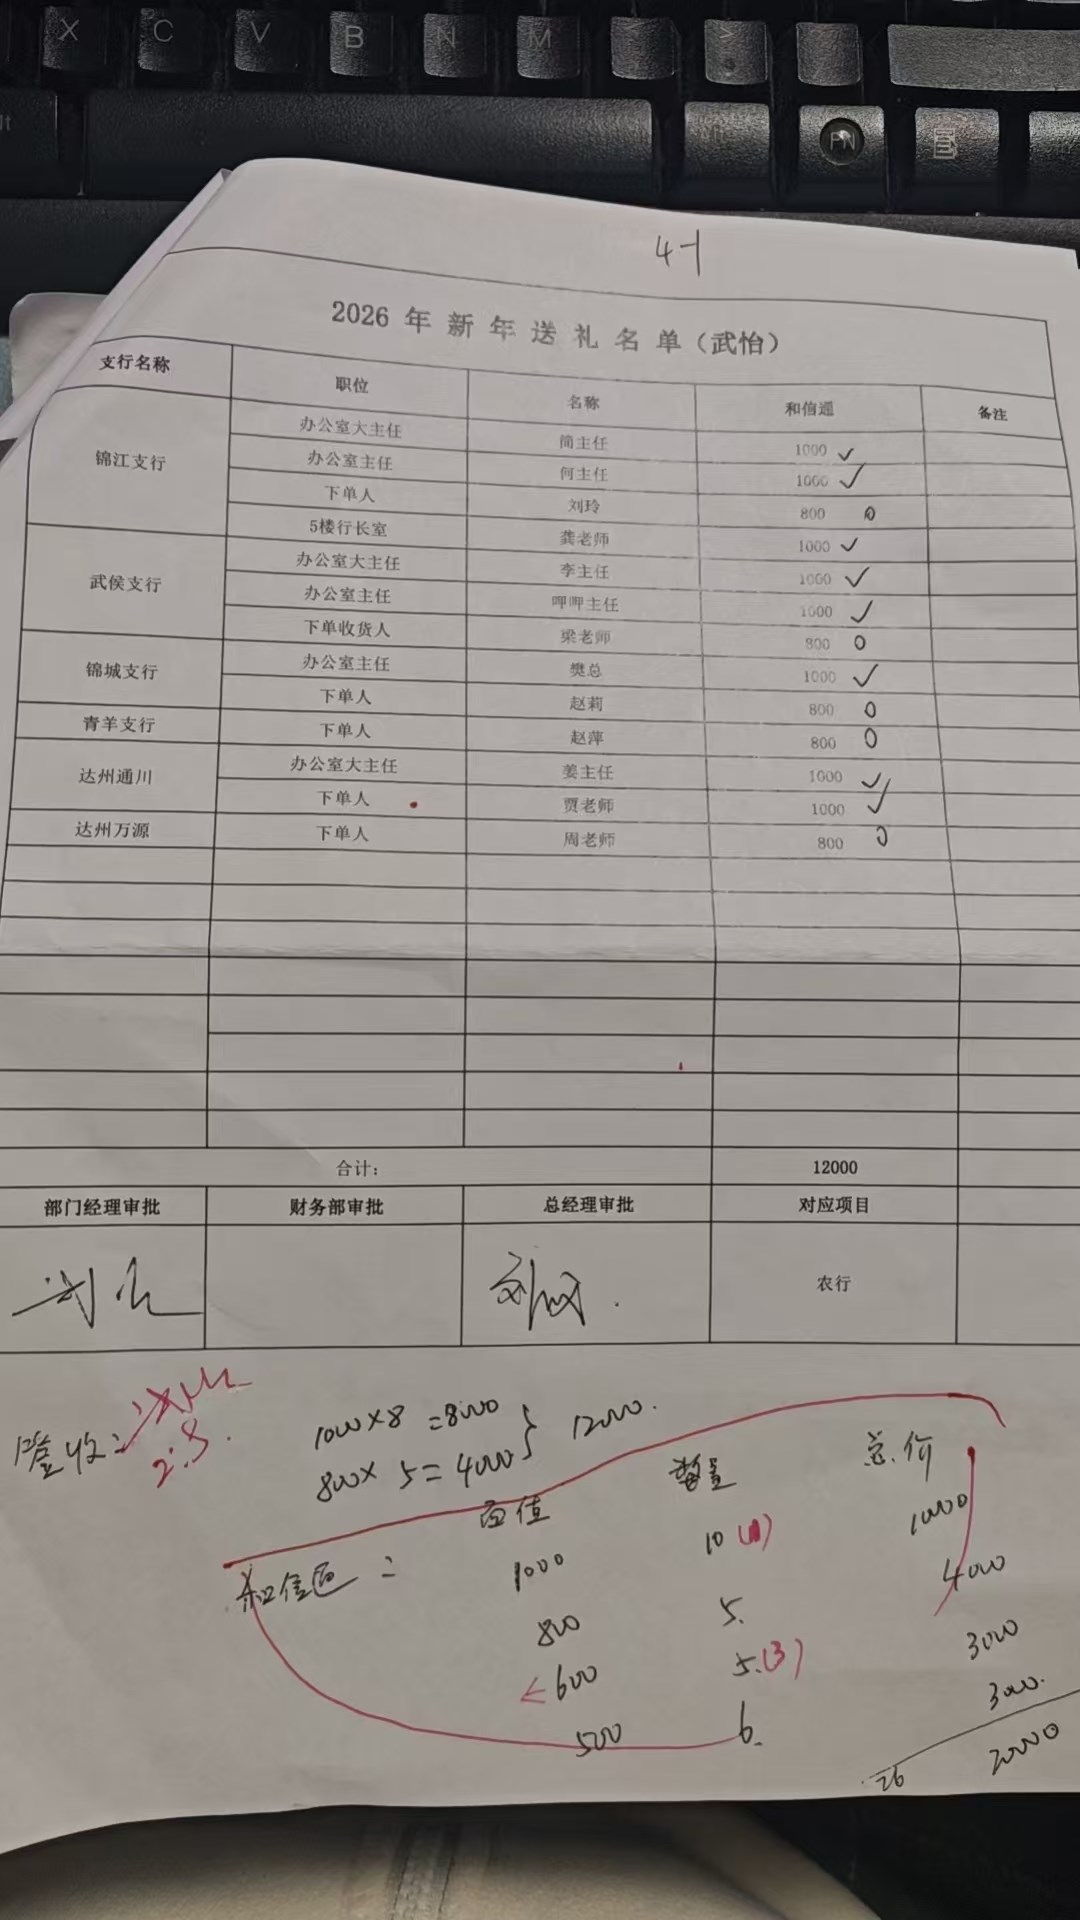 X C V B N M < >
FN
4-1
2026 年 新 年 送 礼 名 单（武怡）
支行名称 职位 名称 和信通 备注
锦江支行 办公室大主任 简主任 1000 ✓
办公室主任 何主任 1000 ✓
下单人 刘玲 800 0
5楼行长室 龚老师 1000 ✓
武侯支行 办公室大主任 李主任 1000 ✓
办公室主任 呷呷主任 1000 ✓
下单收货人 梁老师 800 0
锦城支行 办公室主任 樊总 1000 ✓
下单人 赵莉 800 0
青羊支行 下单人 赵萍 800 0
达州通川 办公室大主任 姜主任 1000 ✓
下单人 贾老师 1000 ✓
达州万源 下单人 周老师 800 0
合计： 12000
部门经理审批 财务部审批 总经理审批 对应项目
农行
签收：
2.5.
1000×8 =8000
800× 5=4000 } 12000.
面值 数量 总价
和信通： 1000 10 10000
800 5. 4000
<600 5.(3) 3000
500 6. 3000.
26 20000